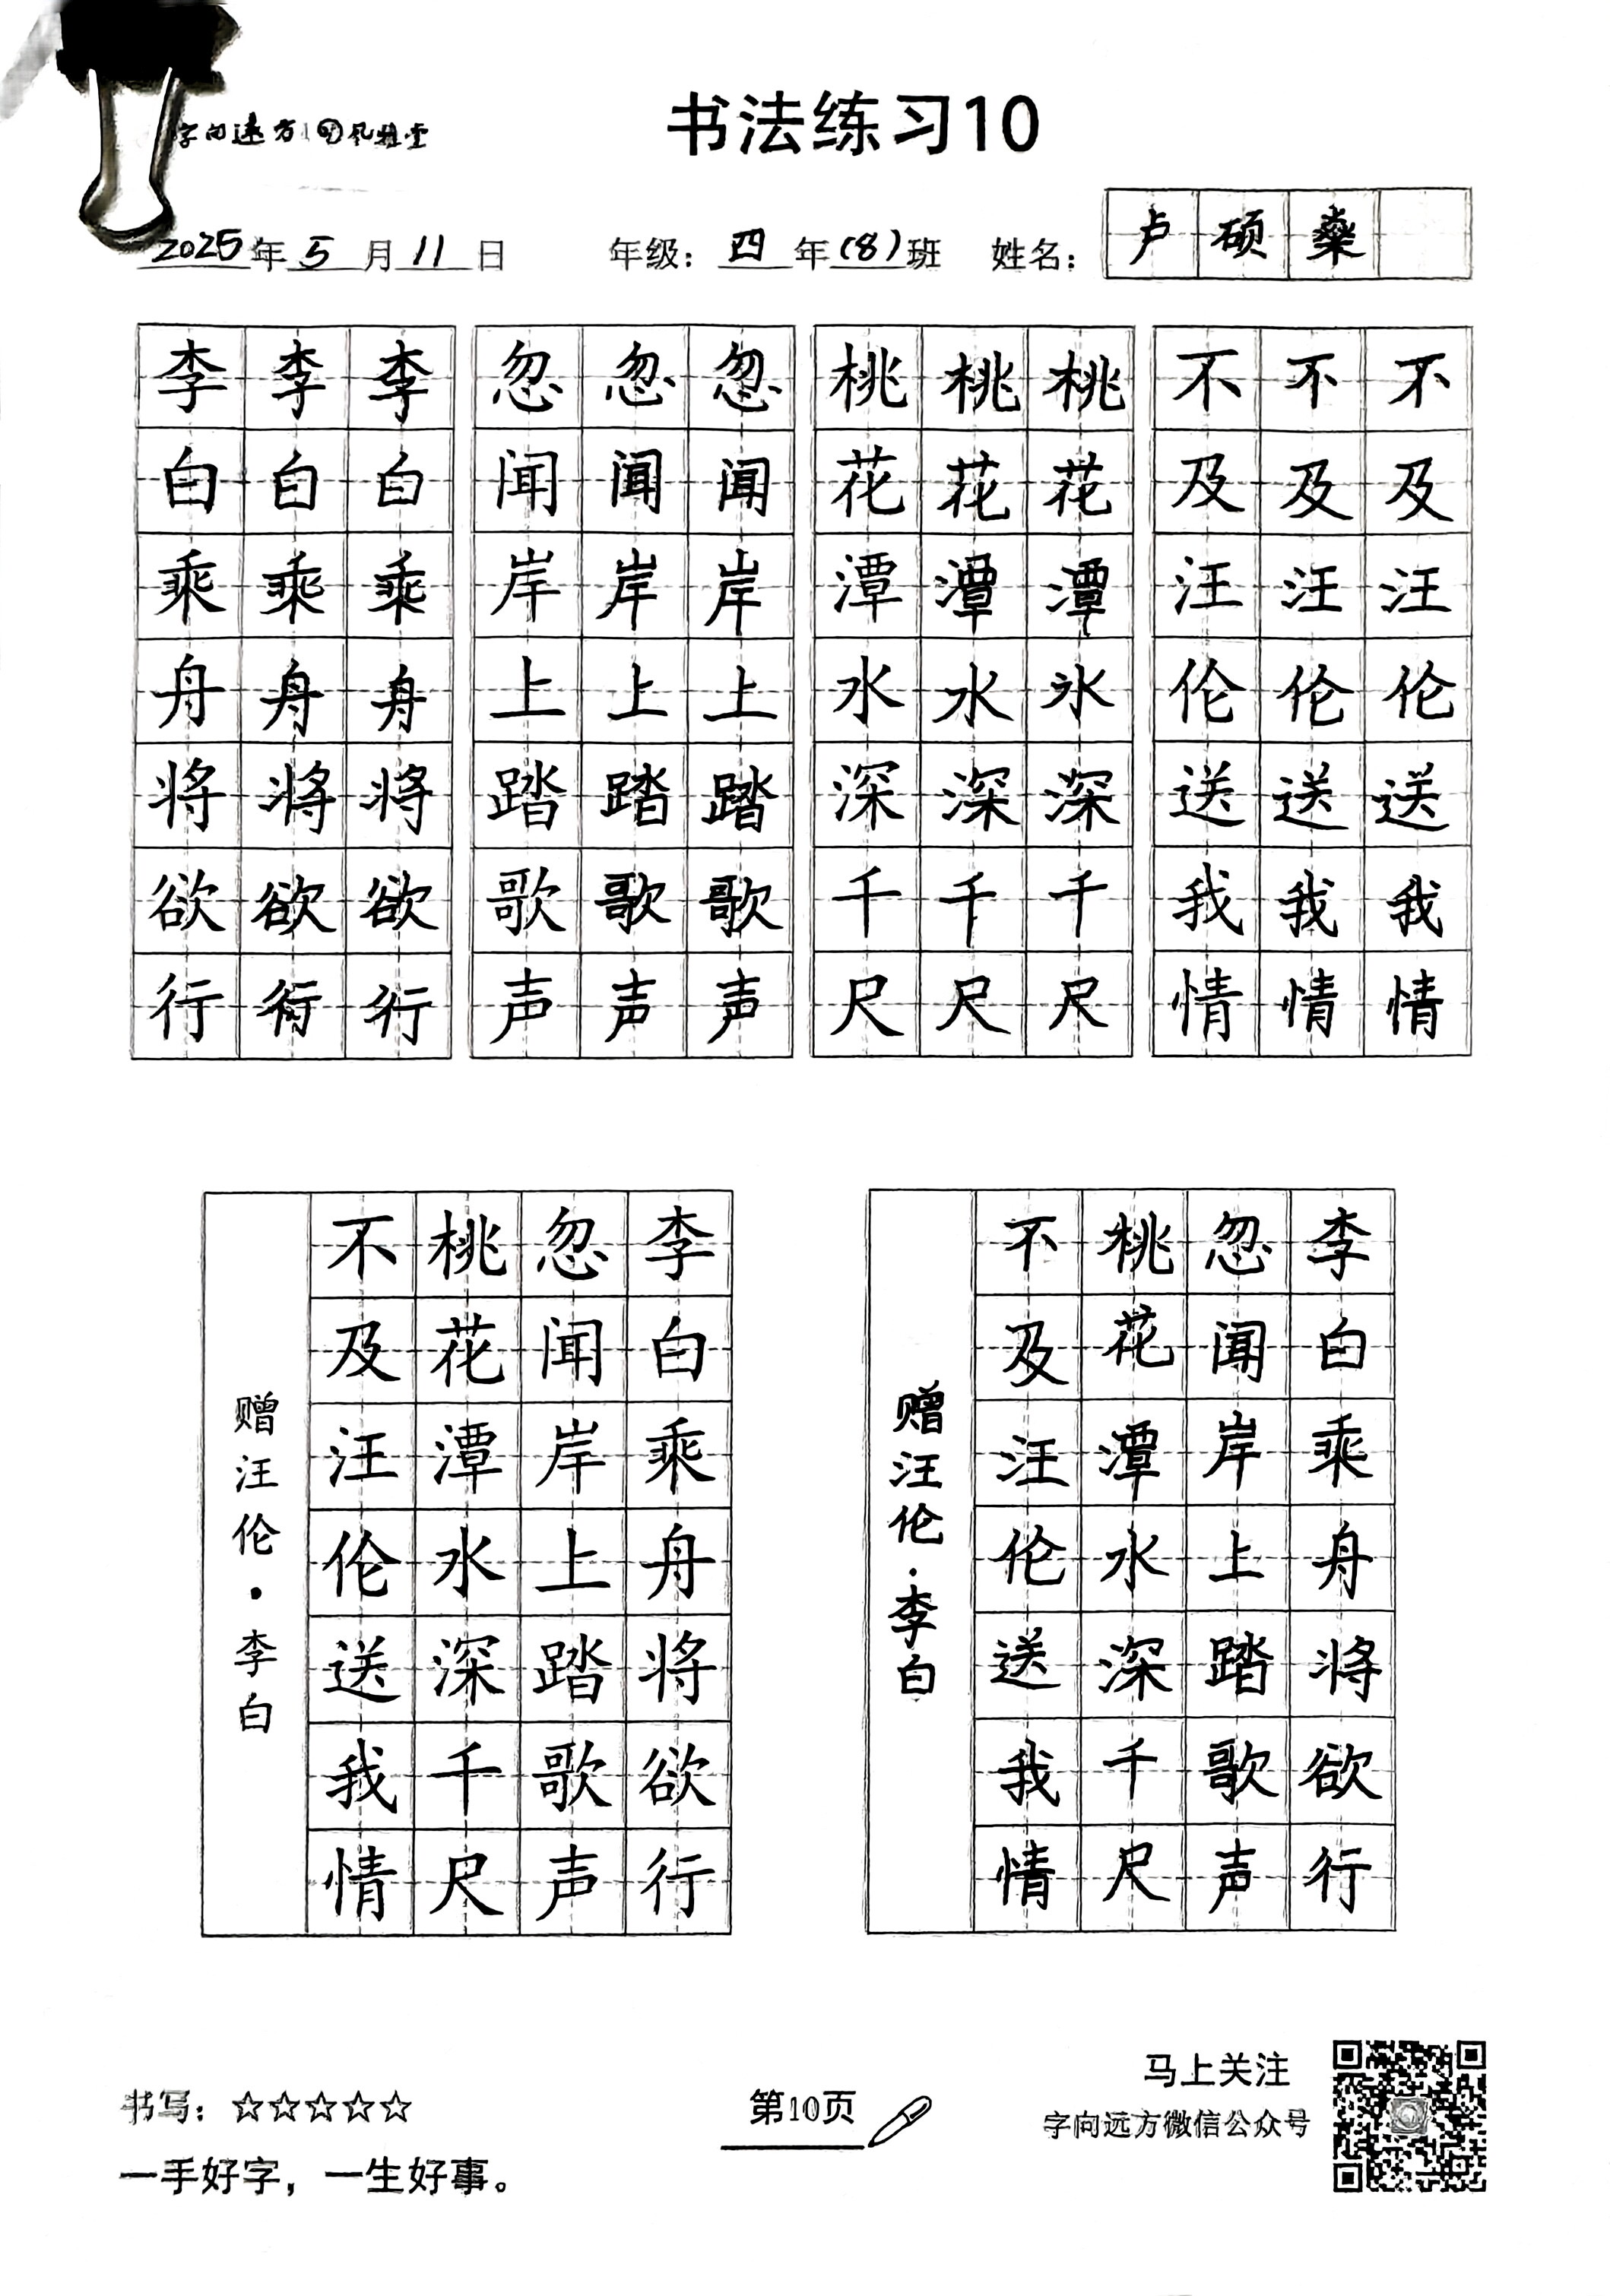 字向远方
书法练习10
2025年5月11日 年级：四年(8)班 姓名：卢硕燊
李李李 忽忽忽 桃桃桃 不不不
白白白 闻闻闻 花花花 及及及
乘乘乘 岸岸岸 潭潭潭 汪汪汪
舟舟舟 上上上 水水水 伦伦伦
将将将 踏踏踏 深深深 送送送
欲欲欲 歌歌歌 千千千 我我我
行行行 声声声 尺尺尺 情情情
李白乘舟将欲行
忽闻岸上踏歌声
桃花潭水深千尺
不及汪伦送我情
赠汪伦·李白
李白乘舟将欲行
忽闻岸上踏歌声
桃花潭水深千尺
不及汪伦送我情
赠汪伦·李白
书写：☆☆☆☆☆
一手好字，一生好事。
第10页
马上关注
字向远方微信公众号